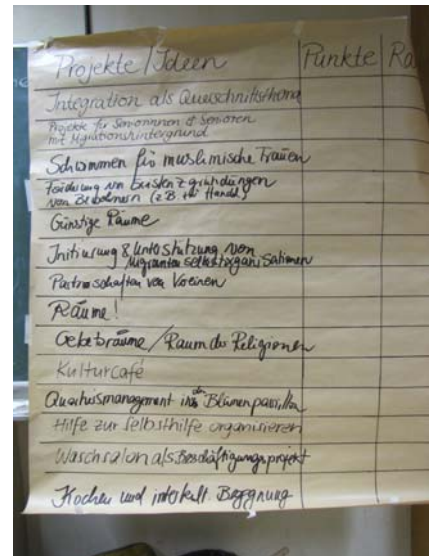 Projekte/Ideen Punkte Ra
Integration als Querschnittsthema
Projekte für Seniorinnen & Senioren
mit Migrationshintergrund
Schwimmen für muslimische Frauen
Förderung von Existenzgründungen
von Bewohnern (z.B. Handel)
Günstige Räume
Initiierung & Unterstützung von
Migrantenselbstorganisationen
Partnerschaften von Vereinen
Räume!
Gebetsräume/Raum der Religionen
Kulturcafé
Quartiersmanagement in der
Hilfe zur Selbsthilfe organisieren
Waschsalon als Beschäftigungsprojekt
Kochen und interkult. Begegnung